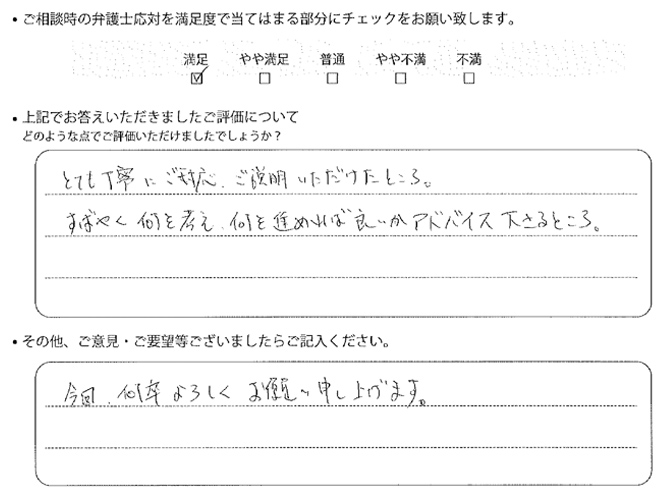 ・ご相談時の弁護士応対を満足度で当てはまる部分にチェックをお願い致します。
満足 やや満足 普通 やや不満 不満
☑ □ □ □ □
・上記でお答えいただきましたご評価について
どのような点でご評価いただけましたでしょうか？
とても丁寧にご対応、ご説明いただけたところ。
すばやく何を考え、何を進めれば良いかアドバイス下さるところ。
・その他、ご意見・ご要望等ございましたらご記入ください。
今回、何卒よろしくお願い申し上げます。